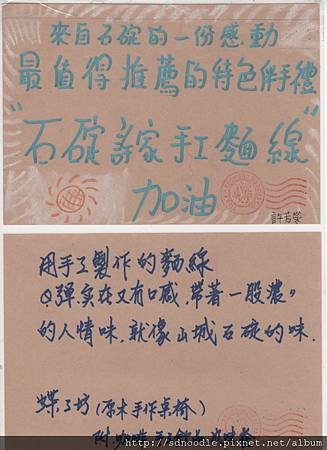 來自石碇的一份感動
最值得推薦的特色伴手禮
"石碇許家手工麵線"
加油
許若棠
用手工製作的麵線
Q彈.实在又有口感.帶著一股濃"
的人情味.就像山城石碇的味.
蝶之坊(原木手作桌椅)
附.咖啡
©http://sdnoodle.pixnet.net/album